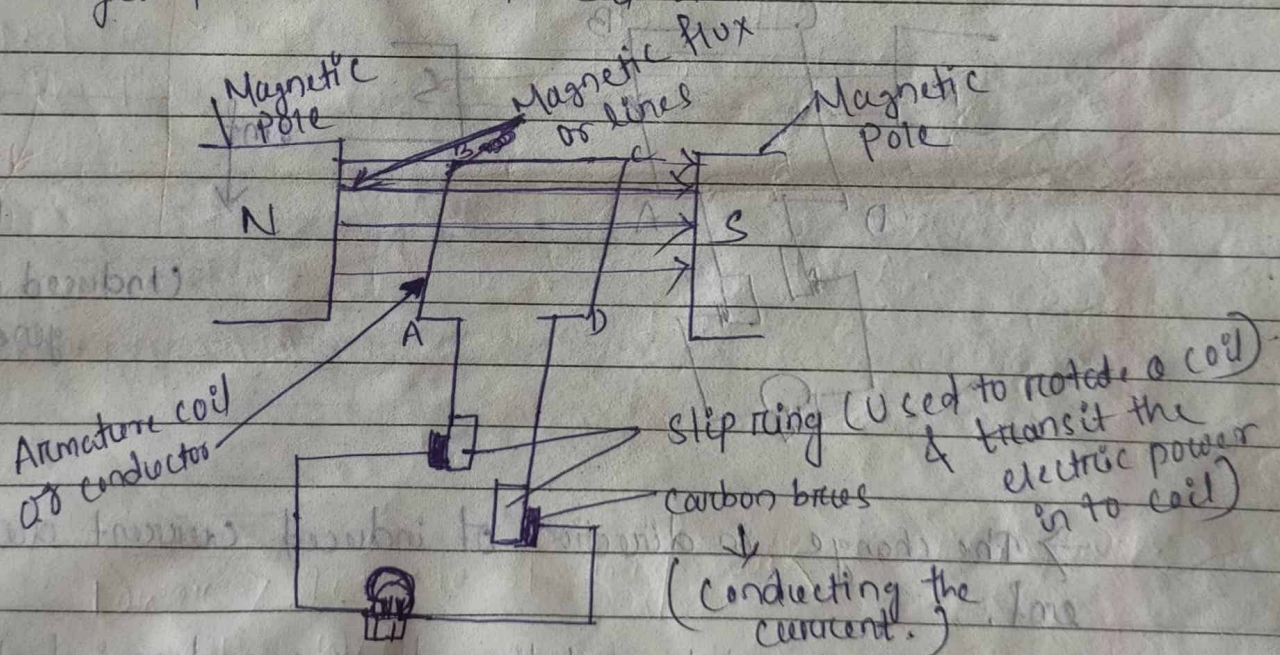 Magnetic
Pole
Magnetic flux
or lines
Magnetic
Pole
B
C
N
S
A
D
Armature coil
or conductor
Slip ring (Used to rotate a coil)
& transit the
electric power
in to coil)
carbon brues
(Conducting the
current.)